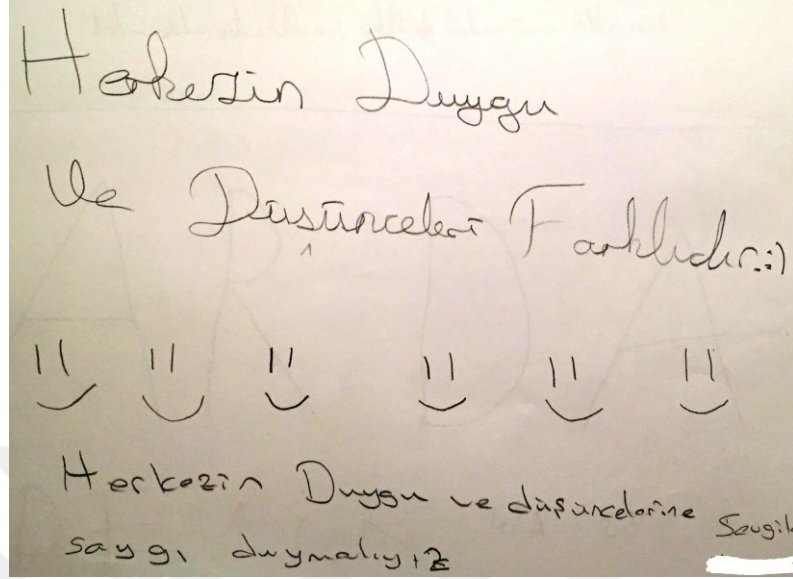 Herkezin Duygu
Ve Düşünceleri Farklıdır.:)
Herkezin Duygu ve düşüncelerine
saygı duymalıyız